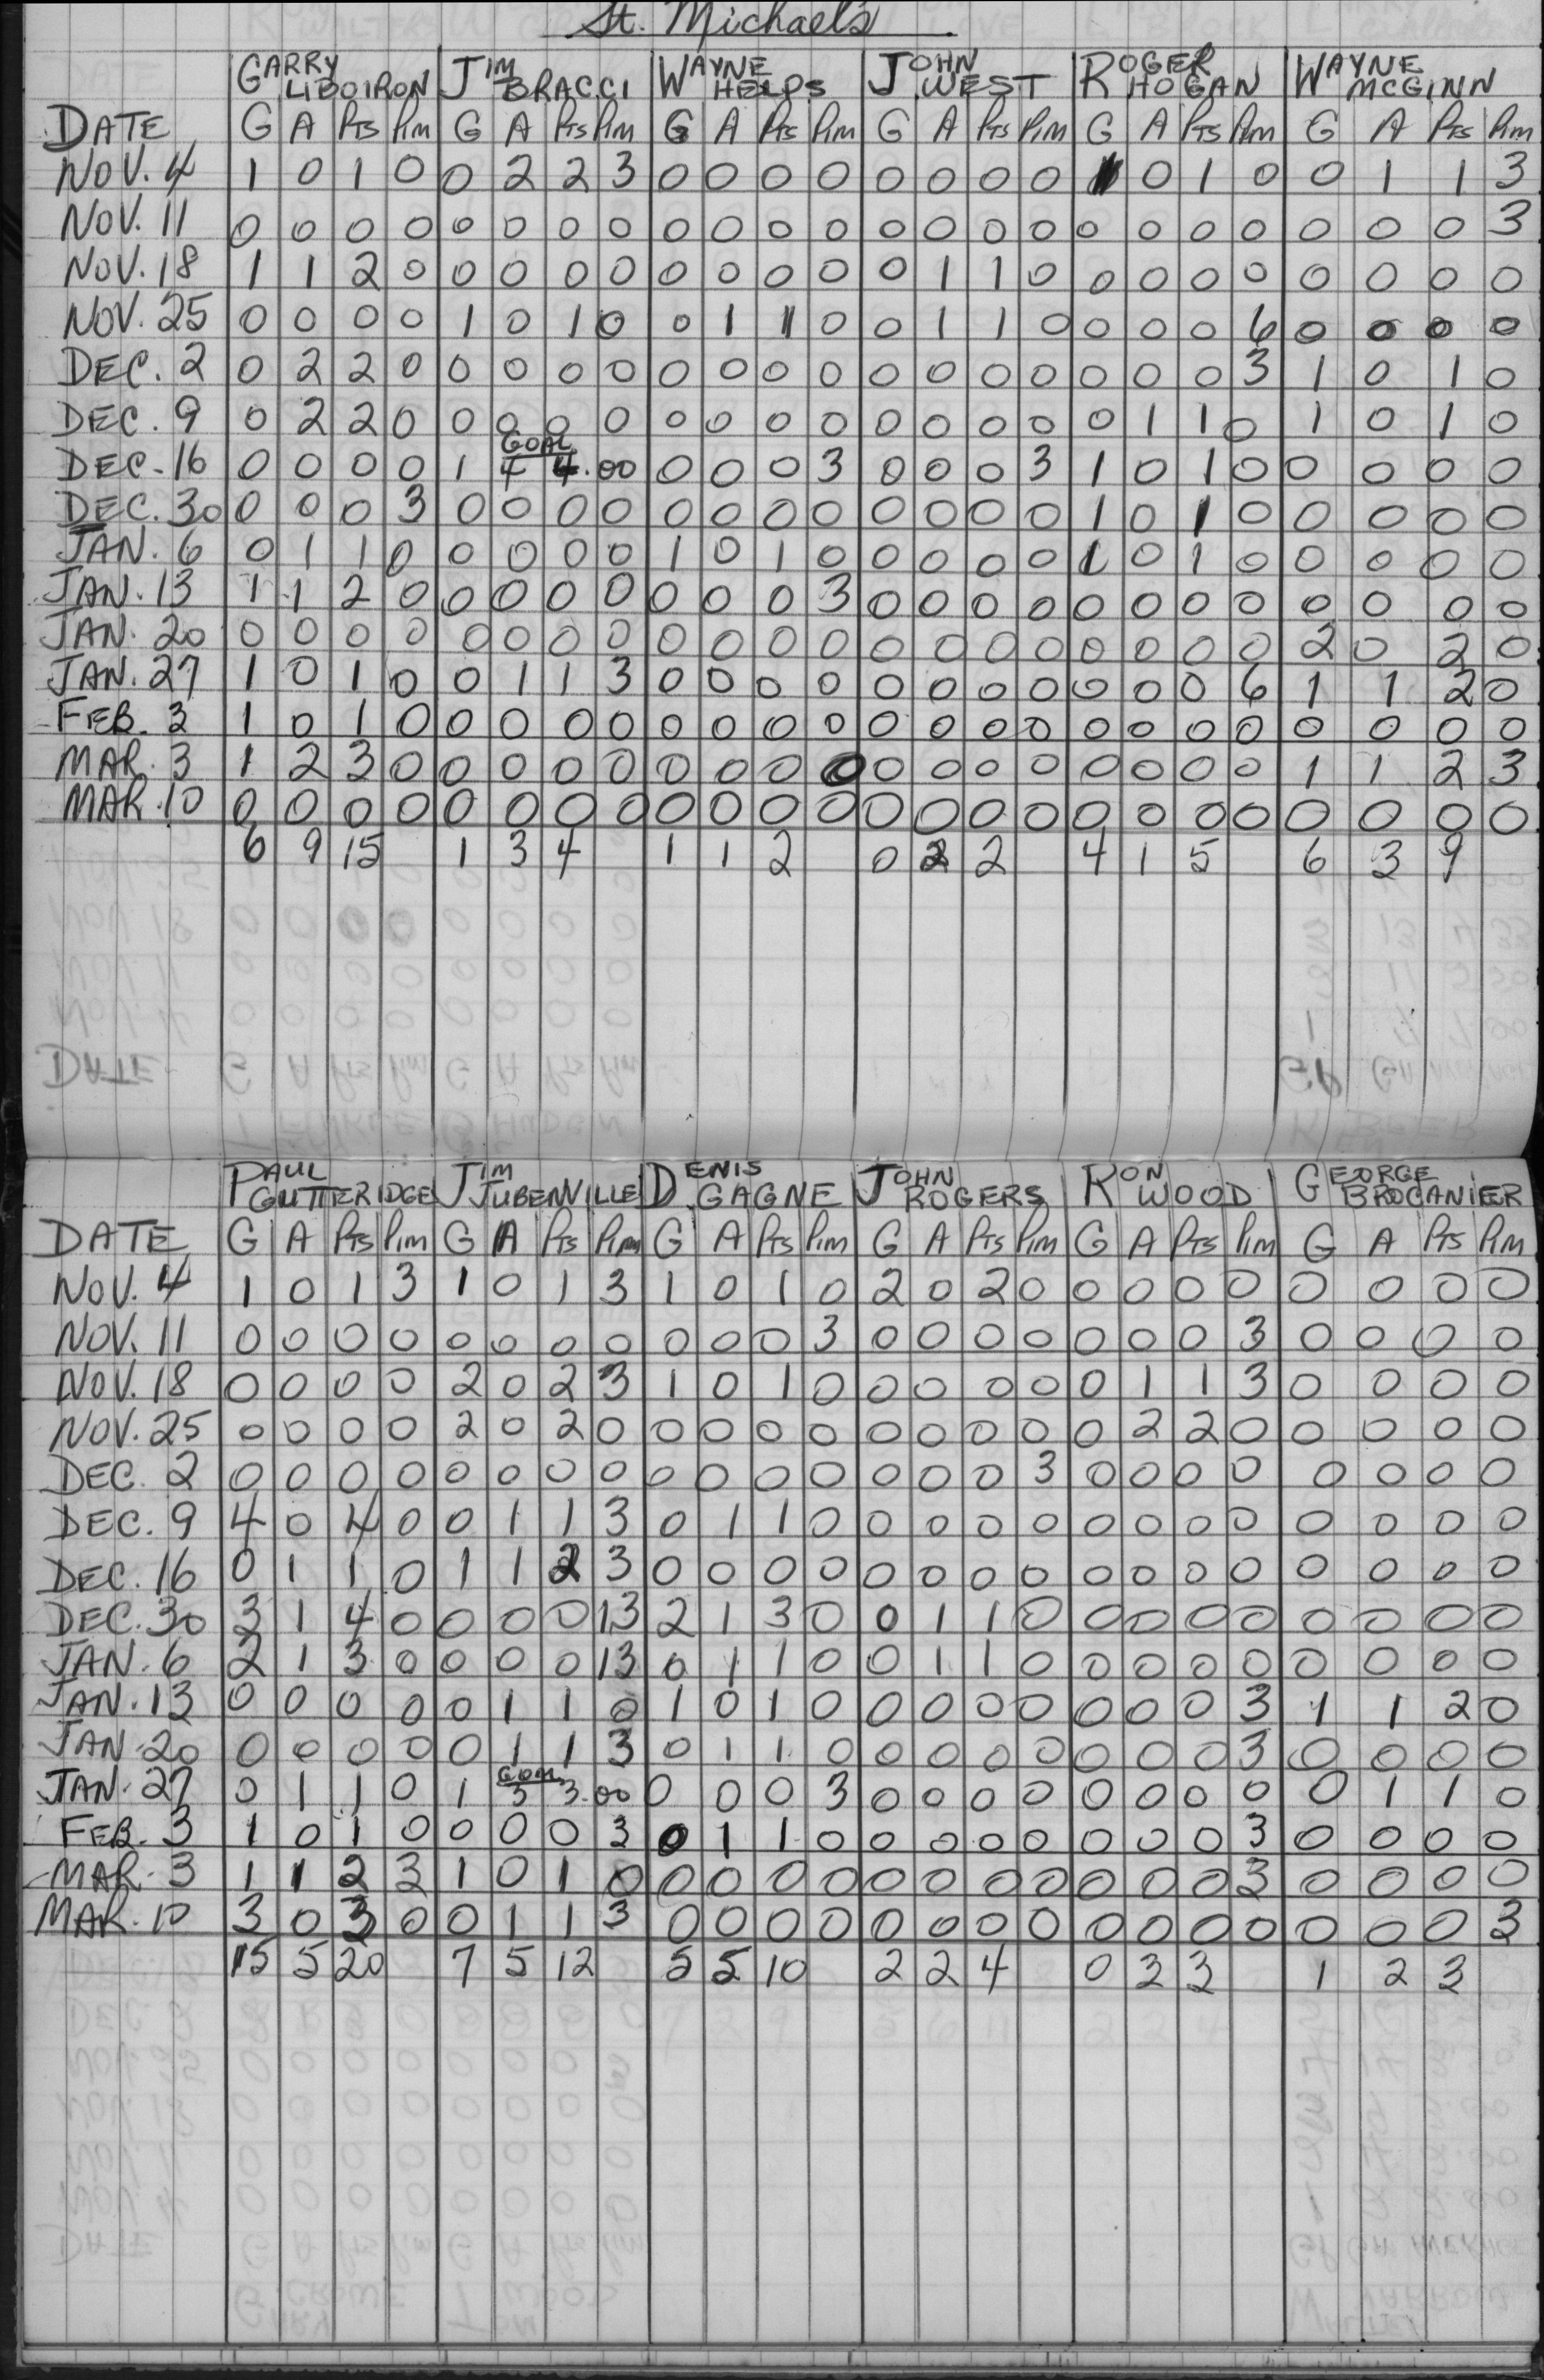 St. Michael's
GARRY LIBOIRON JIM BRACCI WAYNE HELPS JOHN WEST ROGER HOGAN WAYNE MCGINN
DATE G A Pts Pim G A Pts Pim G A Pts Pim G A Pts Pim G A Pts Pim G A Pts Pim
NOV. 4 1 0 1 0 0 2 2 3 0 0 0 0 0 0 0 0 1 0 1 0 0 1 1 3
NOV. 11 0 0 0 0 0 0 0 0 0 0 0 0 0 0 0 0 0 0 0 0 0 0 0 3
NOV. 18 1 1 2 0 0 0 0 0 0 0 0 0 0 1 1 0 0 0 0 0 0 0 0 0
NOV. 25 0 0 0 0 1 0 1 0 0 1 1 0 0 1 1 0 0 0 0 6 0 0 0 0
DEC. 2 0 2 2 0 0 0 0 0 0 0 0 0 0 0 0 0 0 0 0 3 1 0 1 0
DEC. 9 0 2 2 0 0 0 0 0 0 0 0 0 0 0 0 0 0 1 1 0 1 0 1 0
GOAL
DEC. 16 0 0 0 0 1 4 4.00 0 0 0 3 0 0 0 3 1 0 1 0 0 0 0 0
DEC. 30 0 0 0 3 0 0 0 0 0 0 0 0 0 0 0 0 1 0 1 0 0 0 0 0
JAN. 6 0 1 1 0 0 0 0 0 1 0 1 0 0 0 0 0 1 0 1 0 0 0 0 0
JAN. 13 1 1 2 0 0 0 0 0 0 0 0 3 0 0 0 0 0 0 0 0 0 0 0 0
JAN. 20 0 0 0 0 0 0 0 0 0 0 0 0 0 0 0 0 0 0 0 0 2 0 2 0
JAN. 27 1 0 1 0 0 1 1 3 0 0 0 0 0 0 0 0 0 0 0 6 1 1 2 0
FEB. 3 1 0 1 0 0 0 0 0 0 0 0 0 0 0 0 0 0 0 0 0 0 0 0 0
MAR. 3 1 2 3 0 0 0 0 0 0 0 0 0 0 0 0 0 0 0 0 0 1 1 2 3
MAR. 10 0 0 0 0 0 0 0 0 0 0 0 0 0 0 0 0 0 0 0 0 0 0 0 0
6 9 15 1 3 4 1 1 2 0 2 2 4 1 5 6 3 9
PAUL GUTTERIDGE JIM JUBENVILLE DENIS GAGNE JOHN ROGERS RON WOOD GEORGE BROCANIER
DATE G A Pts Pim G A Pts Pim G A Pts Pim G A Pts Pim G A Pts Pim G A Pts Pim
NOV. 4 1 0 1 3 1 0 1 3 1 0 1 0 2 0 2 0 0 0 0 0 0 0 0 0
NOV. 11 0 0 0 0 0 0 0 0 0 0 0 3 0 0 0 0 0 0 0 3 0 0 0 0
NOV. 18 0 0 0 0 2 0 2 3 1 0 1 0 0 0 0 0 0 1 1 3 0 0 0 0
NOV. 25 0 0 0 0 2 0 2 0 0 0 0 0 0 0 0 0 0 2 2 0 0 0 0 0
DEC. 2 0 0 0 0 0 0 0 0 0 0 0 0 0 0 0 3 0 0 0 0 0 0 0 0
DEC. 9 4 0 4 0 0 1 1 3 0 1 1 0 0 0 0 0 0 0 0 0 0 0 0 0
DEC. 16 0 1 1 0 1 1 2 3 0 0 0 0 0 0 0 0 0 0 0 0 0 0 0 0
DEC. 30 3 1 4 0 0 0 0 13 2 1 3 0 0 1 1 0 0 0 0 0 0 0 0 0
JAN. 6 2 1 3 0 0 0 0 13 0 1 1 0 0 1 1 0 0 0 0 0 0 0 0 0
JAN. 13 0 0 0 0 0 1 1 0 1 0 1 0 0 0 0 0 0 0 0 3 1 1 2 0
JAN. 20 0 0 0 0 0 1 1 3 0 1 1 0 0 0 0 0 0 0 0 3 0 0 0 0
GOAL
JAN. 27 0 1 1 0 1 3 3.00 0 0 0 3 0 0 0 0 0 0 0 0 0 1 1 0
FEB. 3 1 0 1 0 0 0 0 3 0 1 1 0 0 0 0 0 0 0 0 3 0 0 0 0
MAR. 3 1 1 2 3 1 0 1 0 0 0 0 0 0 0 0 0 0 0 0 3 0 0 0 0
MAR. 10 3 0 3 0 0 1 1 3 0 0 0 0 0 0 0 0 0 0 0 0 0 0 0 3
15 5 20 7 5 12 5 5 10 2 2 4 0 3 3 1 2 3